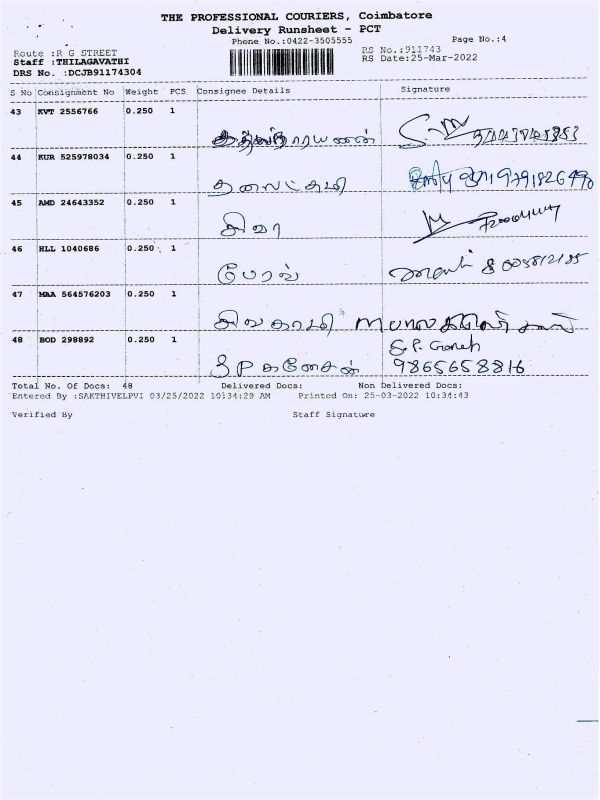 THE PROFESSIONAL COURIERS, Coimbatore
Delivery Runsheet - PCT
Phone No.:0422-3505555
Page No.:4
Route :R G STREET
RS No.:911743
Staff :THILAGAVATHI
RS Date:25-Mar-2022
DRS No. :DCJB91174304
S No Consignment No Weight PCS Consignee Details Signature
43 KVT 2556766 0.250 1
44 KUR 525978034 0.250 1
45 AMD 24643352 0.250 1
சிவா
46 HLL 1040686 0.250 1
47 MAA 564576203 0.250 1
சிவகாமி
48 BOD 298892 0.250 1
S.P. Ganesh
S P கணேசன் 9865658816
Total No. Of Docs: 48 Delivered Docs: Non Delivered Docs:
Entered By :SAKTHIVELPVI 03/25/2022 10:34:29 AM Printed On: 25-03-2022 10:34:43
Verified By Staff Signature